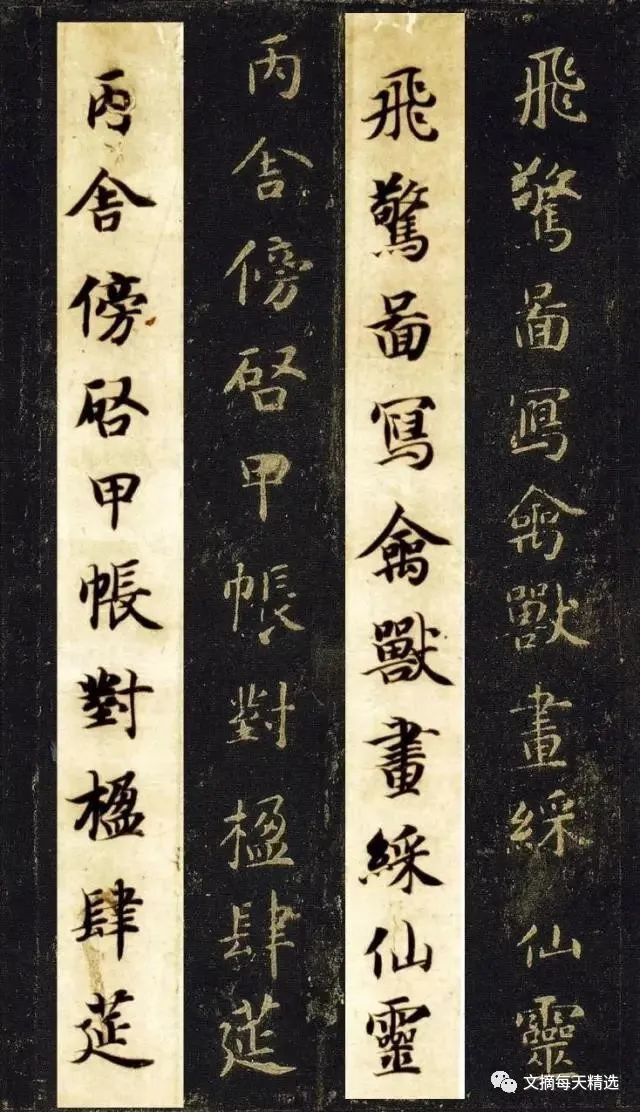 飛驚啚寫禽獸畫綵仙靈
飛驚啚寫禽獸畫綵仙靈
丙舍傍啓甲帳對楹肆莚
丙舍傍啓甲帳對楹肆莚
文摘每天精选